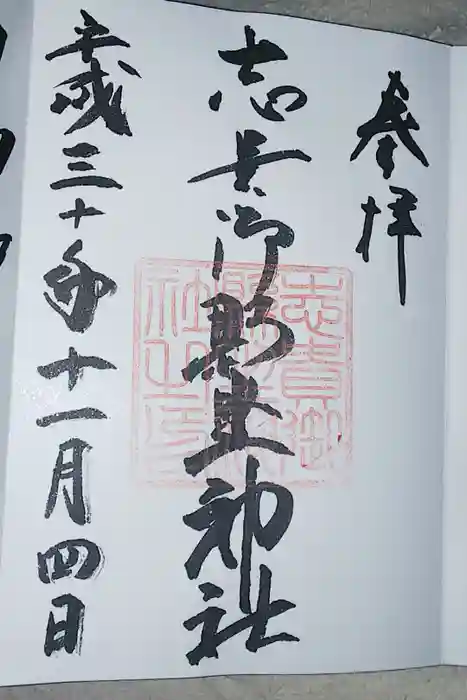 奉拝
志貴御縣坐神社
平成三十年十一月四日
志貴御
縣坐神
社之印